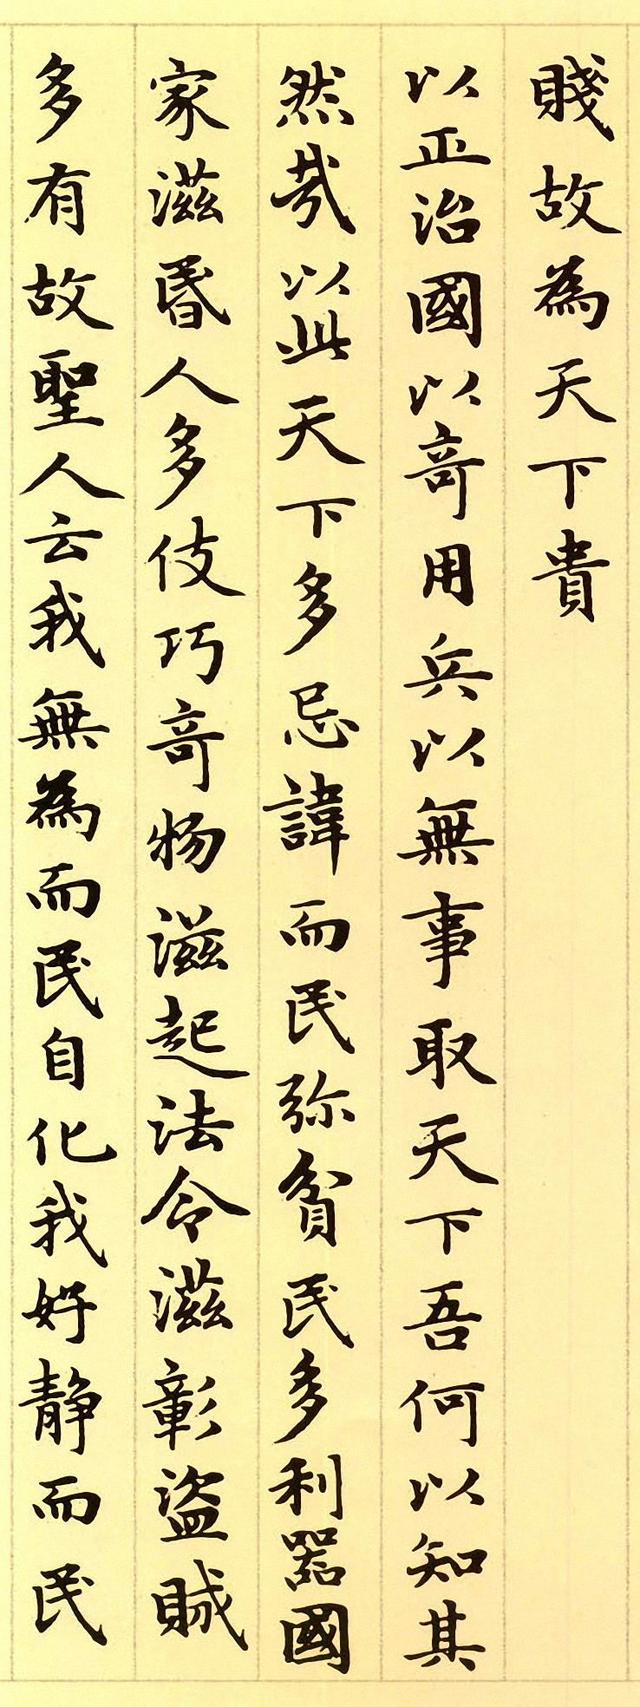 賤故為天下貴
以正治國以奇用兵以無事取天下吾何以知其
然哉以此天下多忌諱而民弥貧民多利器國
家滋昏人多伎巧奇物滋起法令滋彰盜賊
多有故聖人云我無為而民自化我好靜而民